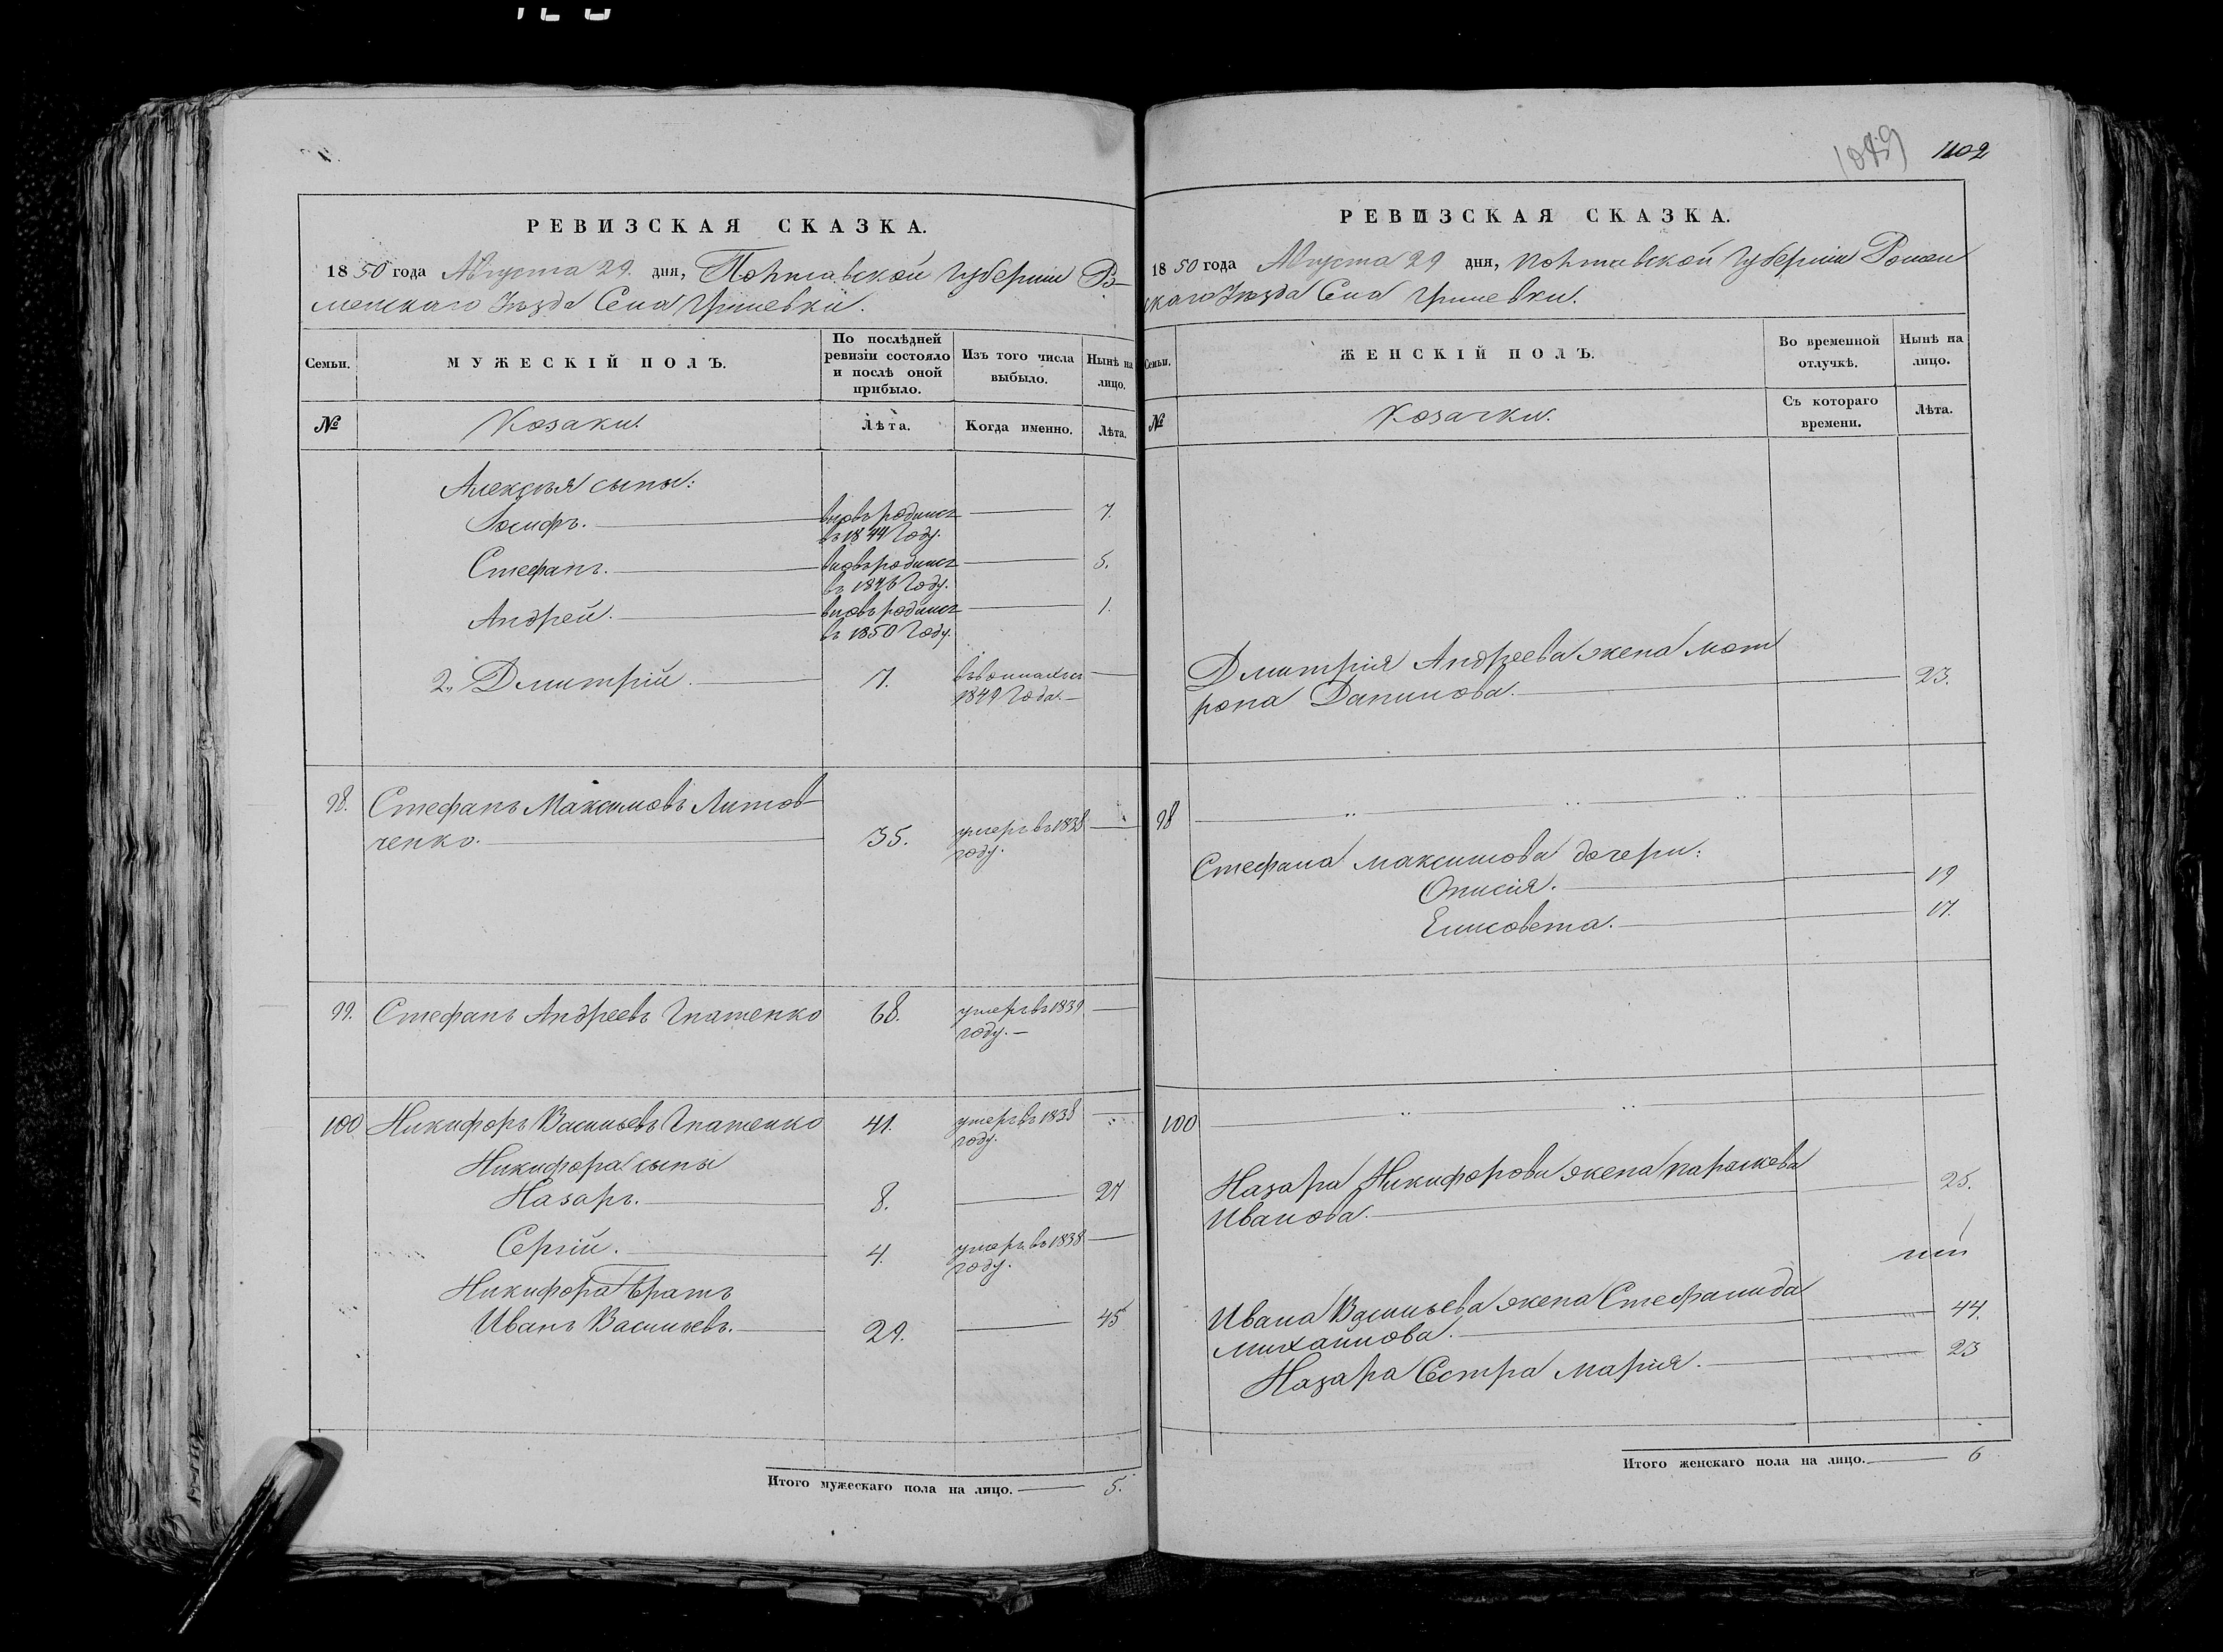 1089 1102
РЕВИЗСКАЯ СКАЗКА.
1850 года Августа 29. дня, Полтавской Губернии Ро-
менскаго Уѣзда Села
Семьи.
МУЖЕСКІЙ ПОЛЪ.
По послѣдней
ревизіи состояло
и послѣ оной
прибыло.
Изъ того числа
выбыло.
Нынѣ на
лицо.
№
Козаки.
Лѣта.
Когда именно.
Лѣта.
Алексѣя сыны:
Іосифъ. вновь родился 7.
въ 1844 Году.
Стефанъ. вновь родился 5.
въ 1846 Году.
Андрей. вновь родился 1.
въ 1850 Году.
2. Дмитрій. 7.
1849 Года.
98. Стефанъ Максимовъ Литов-
ченко. 35. умеръ въ 1838
году.
99. Стефанъ Андреевъ Игнатенко 68. умеръ въ 1839
году.
100 Никифоръ Васильевъ Игнатенко 41. умеръ въ 1838
году.
Никифора сыны
Назаръ. 8. 21
Сергій. 4. умеръ въ 1838
году.
Никифора братъ
Иванъ Васильевъ. 29. 45
Итого мужескаго пола на лицо. 5.
РЕВИЗСКАЯ СКАЗКА.
1850 года Августа 29 дня, Полтавской Губерніи Ромен
скаго Уѣзда Села
Семьи.
ЖЕНСКІЙ ПОЛЪ.
Во временной
отлучкѣ.
Нынѣ на
лицо.
№
Козачки.
Съ котораго
времени.
Лѣта.
Дмитрія Андреева жена Мот
рона Данилова. 23.
98
Стефана Максимова дочери:
Онисія. 19
Елисавета. 17.
100
Назара Никифорова жена Параскева
Иванова. 25.
Ивана Васильева жена Стефанида
Михайлова. 44.
Назара Сестра Марія. 23
Итого женскаго пола на лицо. 6